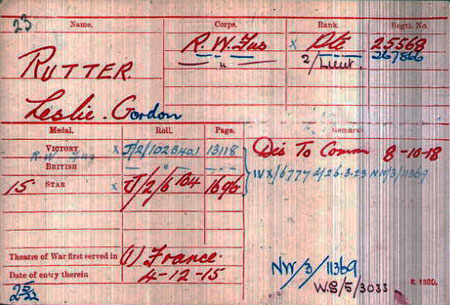 23 Name. Corps. Rank. Regtl. No.
RUTTER. R. W. Fus x Pte 25568
" 2/Lieut. 267866
Leslie. Gordon
Medal. Roll. Page. Remarks
VICTORY J/2/102B401 13118 Dis To Comm 8-10-18
R. W. Fus
BRITISH " " IVX/6777 d/26.3.23 NW/3/11369
15 STAR x J/2/6 B4 1696
Theatre of War first served in (1) France.
Date of entry therein 4-12-15
NW/3/11369
W.S/5/3033 K 1380.